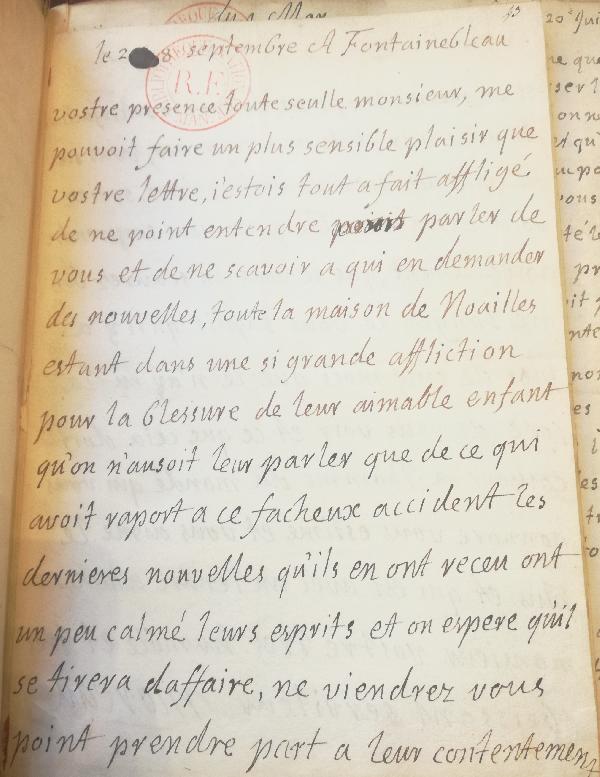 43
le 2 8 septembre A Fontainebleau
R.F.
vostre presence toute seulle monsieur, me
pouvoit faire un plus sensible plaisir que
vostre lettre, i'estois tout a fait affligé
de ne point entendre parler de
vous et de ne scavoir a qui en demander
des nouvelles, toute la maison de Noailles
estant dans une si grande affliction
pour la blessure de leur aimable enfant
qu'on n'ausoit leur parler que de ce qui
avoit raport a ce facheux accident les
dernieres nouvelles qu'ils en ont receu ont
un peu calmé leurs esprits et on espere qu'il
se tirera daffaire, ne viendrez vous
point prendre part a leur contentement